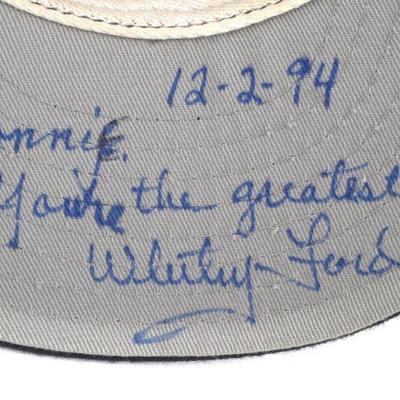 12-2-94
onnie.
You're the greatest
Whitey Ford